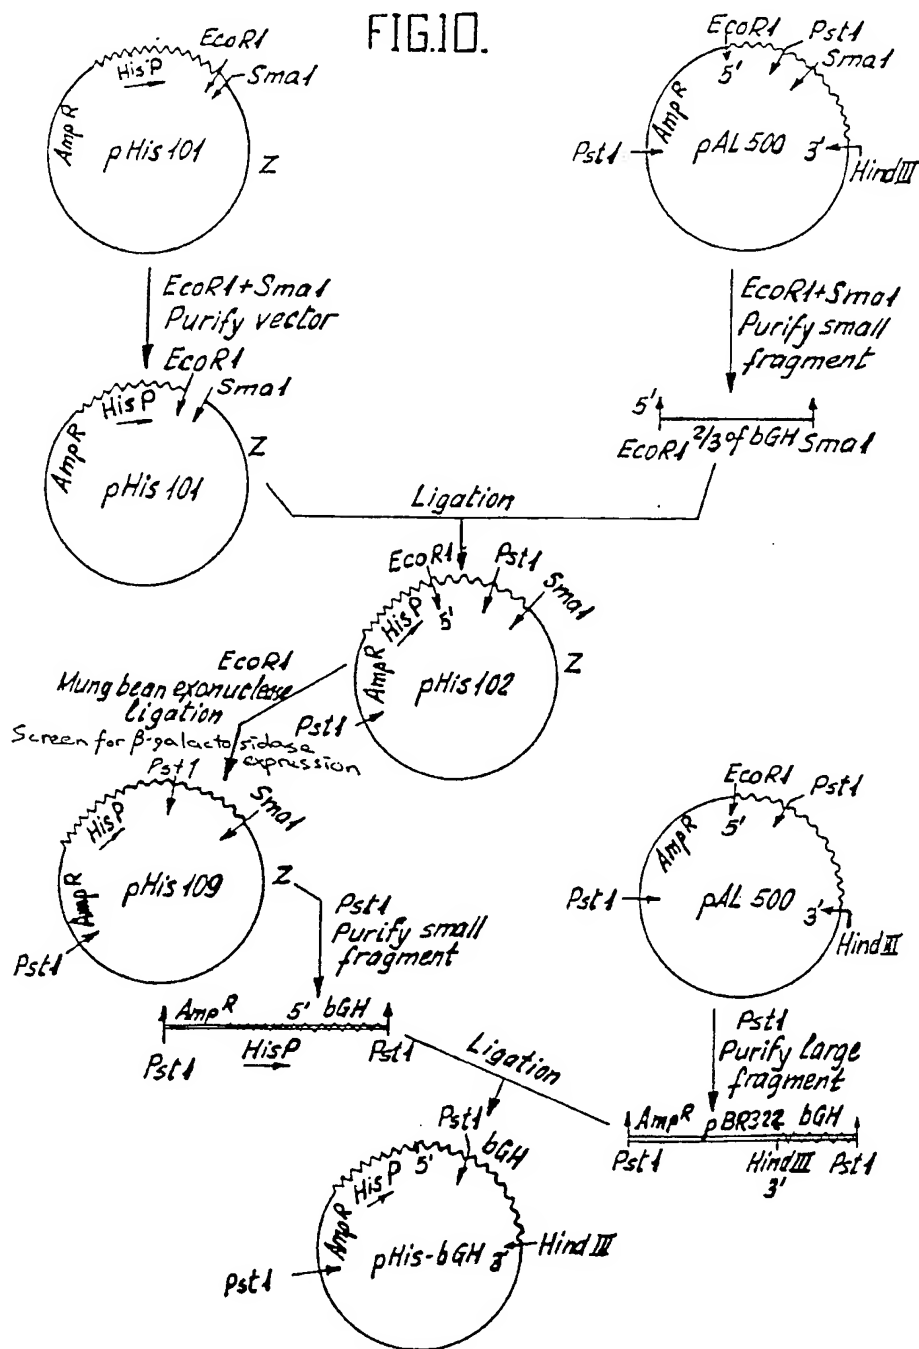 FIG.10.
EcoR1
HisP
Sma1
AmpR
pHis 101
Z
EcoR1
Pst1
Sma1
5'
AmpR
Pst1
pAL 500
3'
Hind III
EcoR1+Sma1
Purify vector
EcoR1+Sma1
Purify small
fragment
EcoR1
Sma1
HisP
AmpR
pHis 101
Z
5'
EcoR1 2/3 of bGH Sma1
Ligation
EcoR1
Pst1
Sma1
HisP
5'
AmpR
pHis 102
Z
Pst1
EcoR1
Mung bean exonuclease
ligation
Screen for β-galactosidase
expression
Pst1
Sma1
HisP
AmpR
pHis 109
Z
Pst1
EcoR1
Pst1
5'
AmpR
Pst1
pAL 500
3'
Hind III
Pst1
Purify small
fragment
AmpR 5' bGH
Pst1 HisP Pst1
Pst1
Purify large
fragment
Ligation
AmpR pBR322 bGH
Pst1 Hind III Pst1
3'
Pst1
bGH
5'
HisP
AmpR
pHis-bGH 3'
Hind III
Pst1